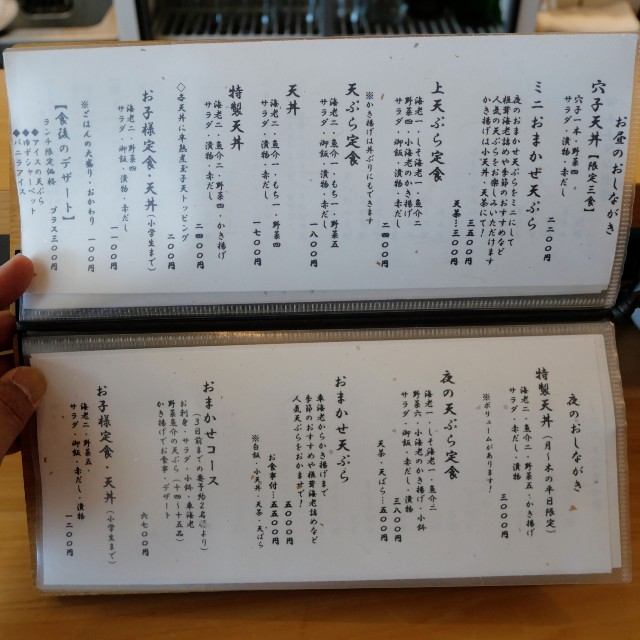 お昼のおしながき
穴子天丼【限定三食】
穴子一本・野菜四
サラダ・漬物・赤だし
二二〇〇円
ミニおまかせ天ぷら
夜のおまかせ天ぷらをミニにして
椎茸海老詰めや季節のおすすめなど
人気の天ぷらをお楽しみいただけます
かき揚げは小天丼・天茶にて!
三五〇〇円
天茶…三〇〇円
上天ぷら定食
海老一・しそ海老一・魚介二
野菜四・小海老のかき揚げ
サラダ・御飯・漬物・赤だし
二四〇〇円
※かき揚げは丼ぶりにもできます
天ぷら定食
海老二・魚介一・もち一・野菜五
サラダ・御飯・漬物・赤だし
一八〇〇円
天丼
海老二・魚介一・もち一・野菜四
サラダ・漬物・赤だし
一七〇〇円
特製天丼
海老二・魚介二・野菜四・かき揚げ
サラダ・漬物・赤だし
二四〇〇円
◇各天丼に半熟煮玉子天トッピング
二〇〇円
お子様定食・天丼(小学生まで)
海老二・野菜四
サラダ・御飯・漬物・赤だし
一一〇〇円
※ごはんの大盛り・おかわり
一〇〇円
【食後のデザート】
ランチ限定価格
プラス三〇〇円
◆アイスの天ぷら
◆ゆずシャーベット
◆バニラアイス
夜のおしながき
特製天丼(月〜木の平日限定)
海老二・魚介二・野菜五・かき揚げ
サラダ・赤だし・漬物
三〇〇〇円
※ボリュームがあります!
夜の天ぷら定食
海老一・しそ海老一・魚介二
野菜六・小海老のかき揚げ・小鉢
サラダ・御飯・赤だし・漬物
三八〇〇円
天茶・天ばら…五〇〇円
おまかせ天ぷら
車海老からかき揚げまで
季節のおすすめや椎茸海老詰めなど
人気天ぷらをおかませで!
五〇〇〇円
お食事付…五五〇〇円
※白飯・小天丼・天茶・天ばら
おまかせコース
(3日前までの要予約2名様より)
お刺身・サラダ・小鉢・車海老
野菜魚介の天ぷら(十四〜十五品)
かき揚げでお食事・デザート
六七〇〇円
お子様定食・天丼(小学生まで)
海老二・野菜五・
サラダ・御飯・赤だし・漬物
一二〇〇円